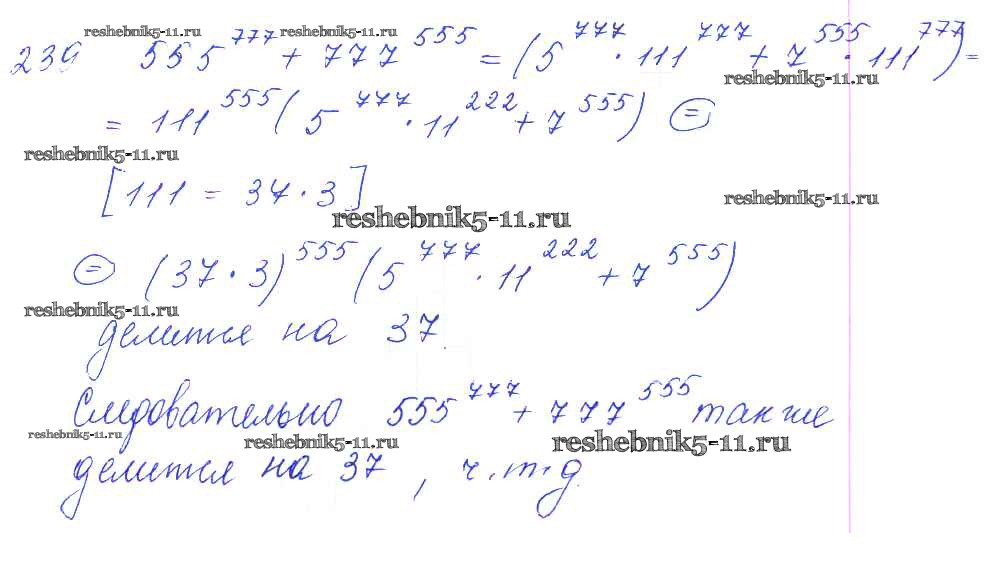 239 555^777 + 777^555 = (5^777 · 111^777 + 7^555 · 111^777) =
= 111^555 (5^777 · 11^222 + 7^555) =
[111 = 37 · 3]
= (37 · 3)^555 (5^777 · 11^222 + 7^555)
делится на 37.
Следовательно 555^777 + 777^555 также
делится на 37, ч.т.д
reshebnik5-11.ru
reshebnik5-11.ru
reshebnik5-11.ru
reshebnik5-11.ru
reshebnik5-11.ru
reshebnik5-11.ru
reshebnik5-11.ru
reshebnik5-11.ru
reshebnik5-11.ru
reshebnik5-11.ru